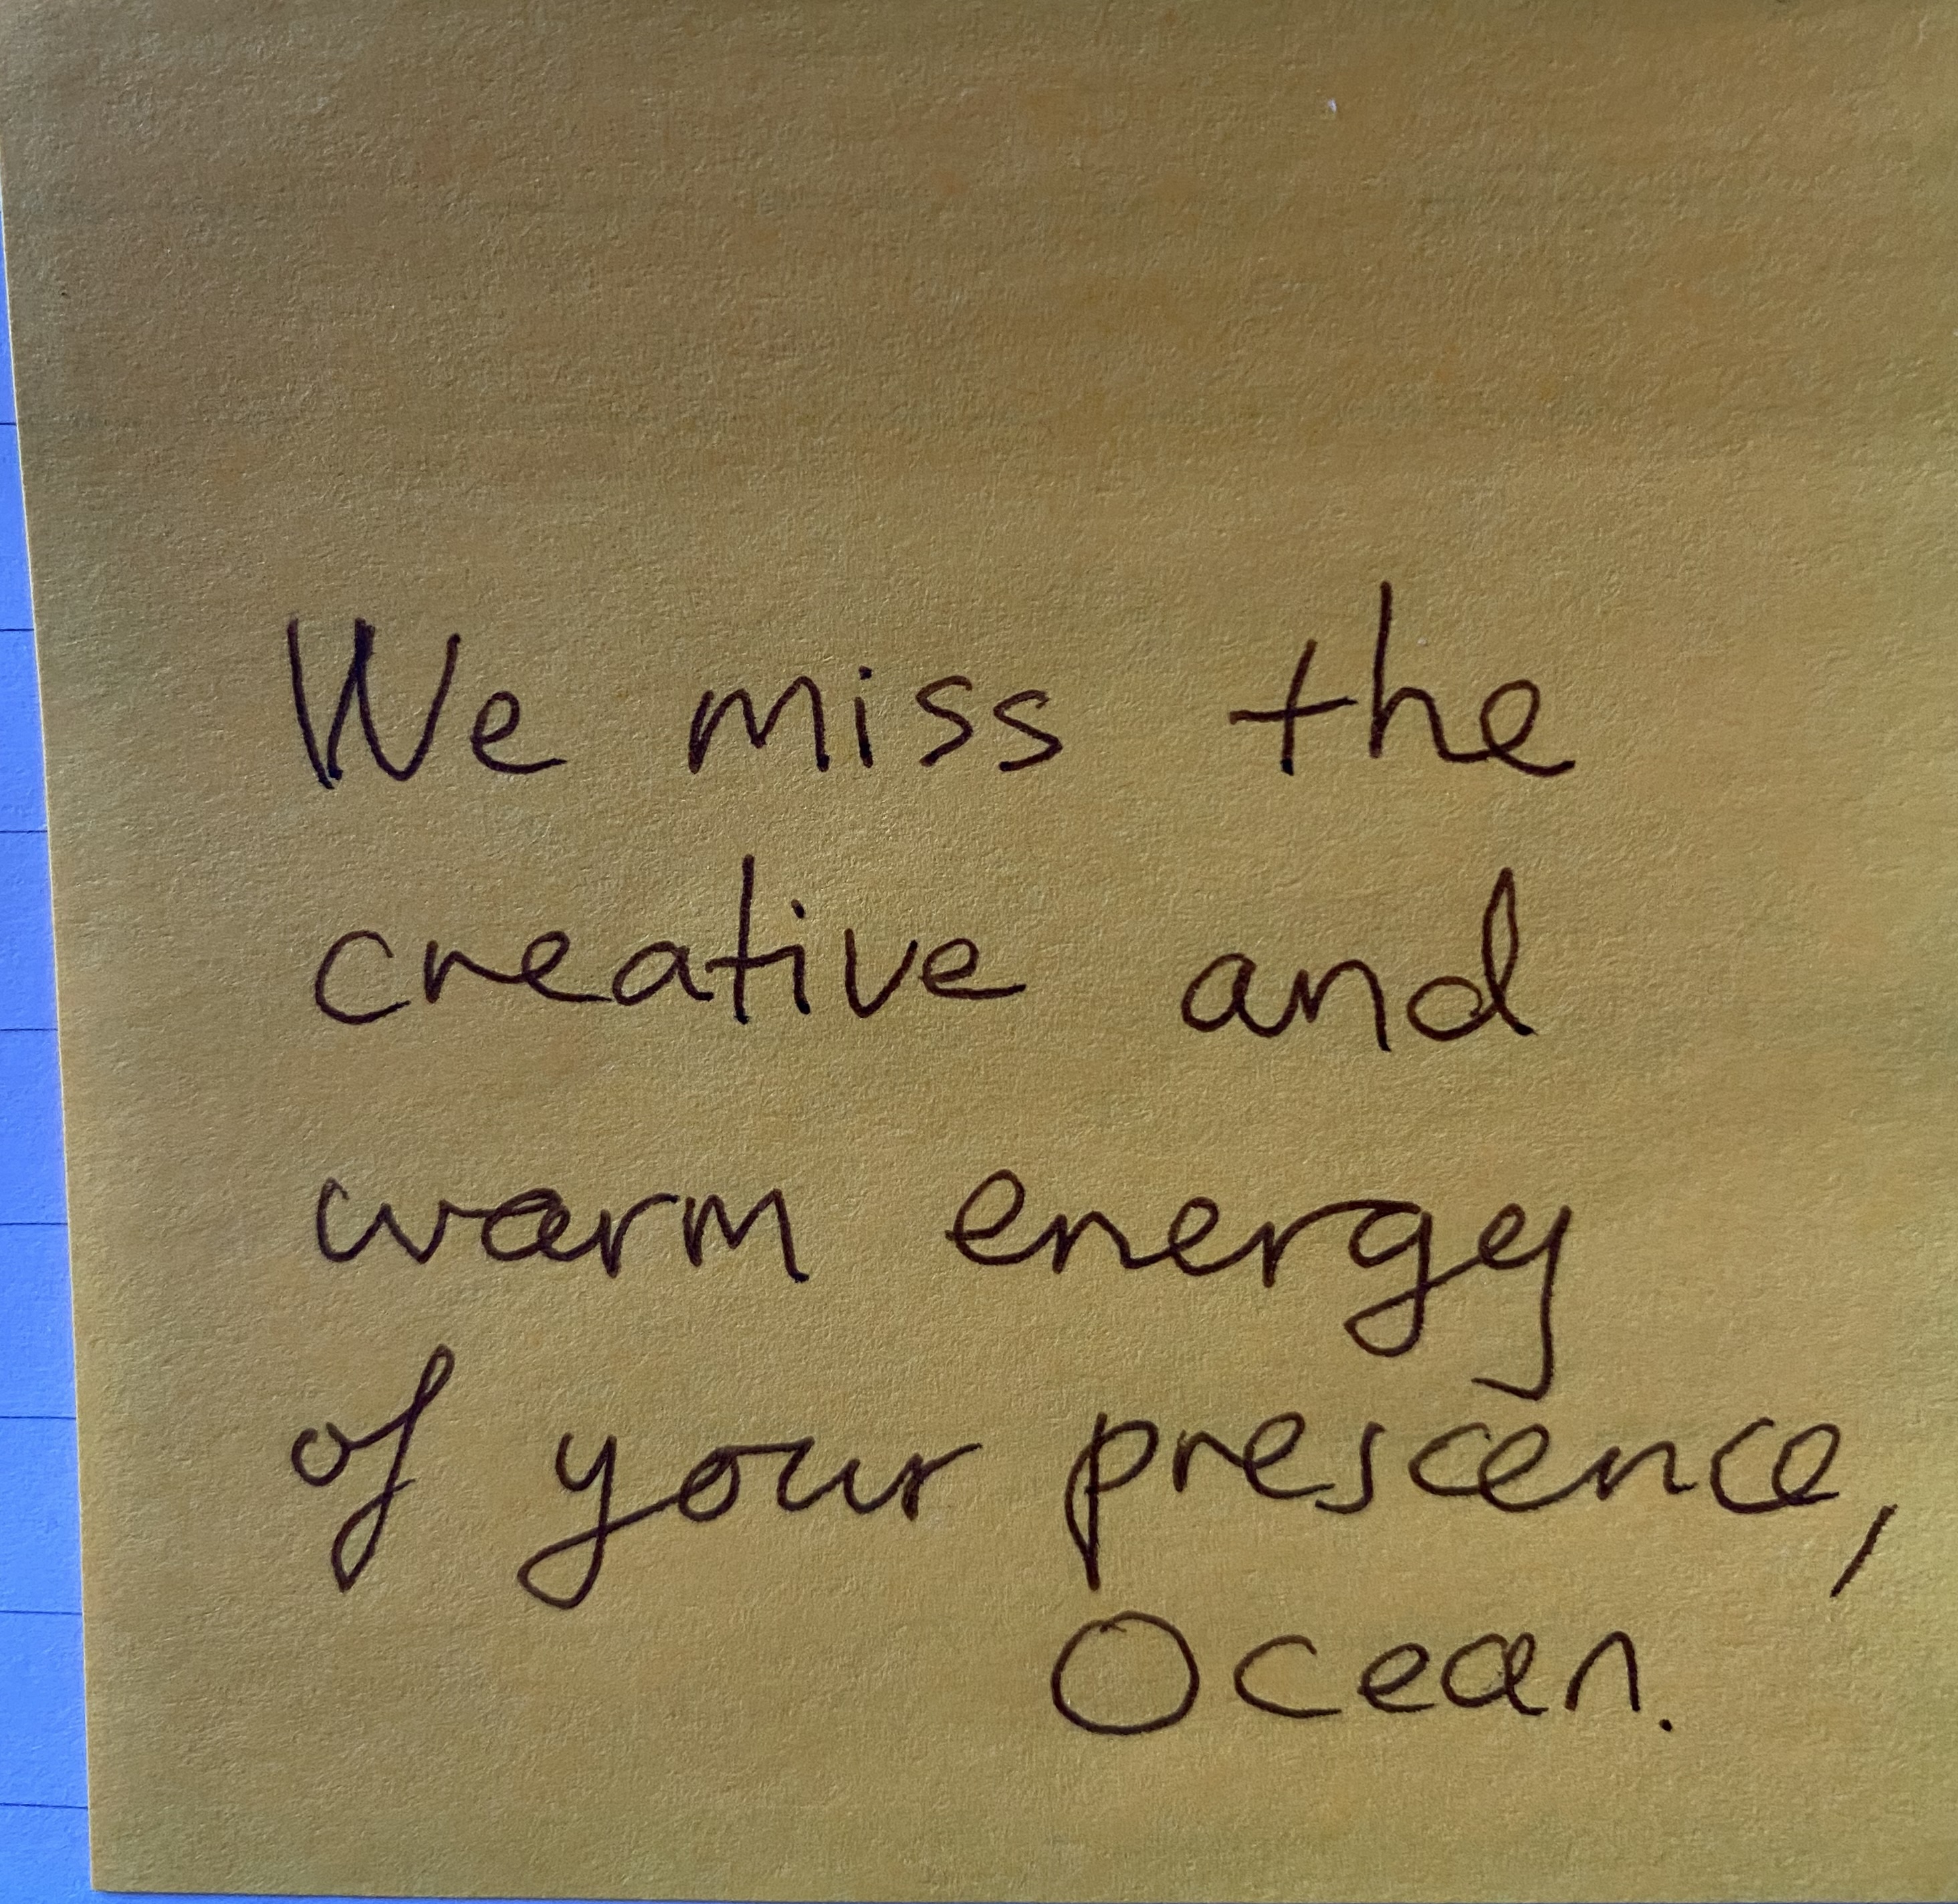 We miss the
creative and
warm energy
of your prescence,
Ocean.